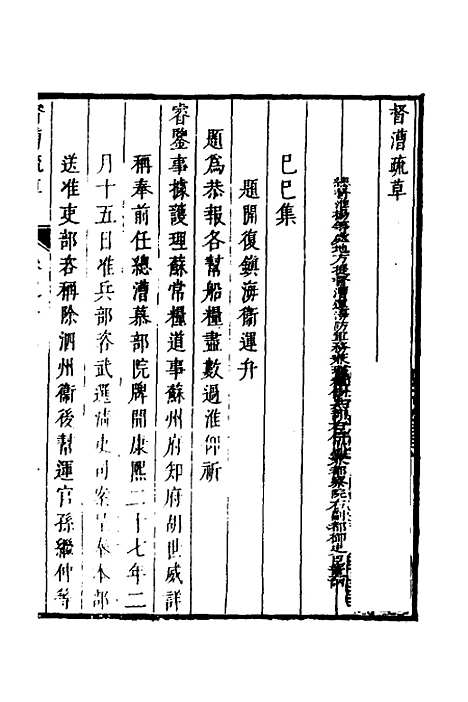 督漕疏草
總督淮揚等處地方提督漕運海防軍務兼
巳巳集
題開復鎮海衛運弁
題為恭報各幫船糧盡數過淮仰祈
睿鑒事據護理蘇常糧道事蘇州府知府胡世威詳
稱奉前任總漕慕部院牌開康熙二十七年二
月十五日准兵部咨武選清吏司案呈奉本部
送准吏部咨稱除泗州衛後幫運官孫繼仲等
督漕疏草